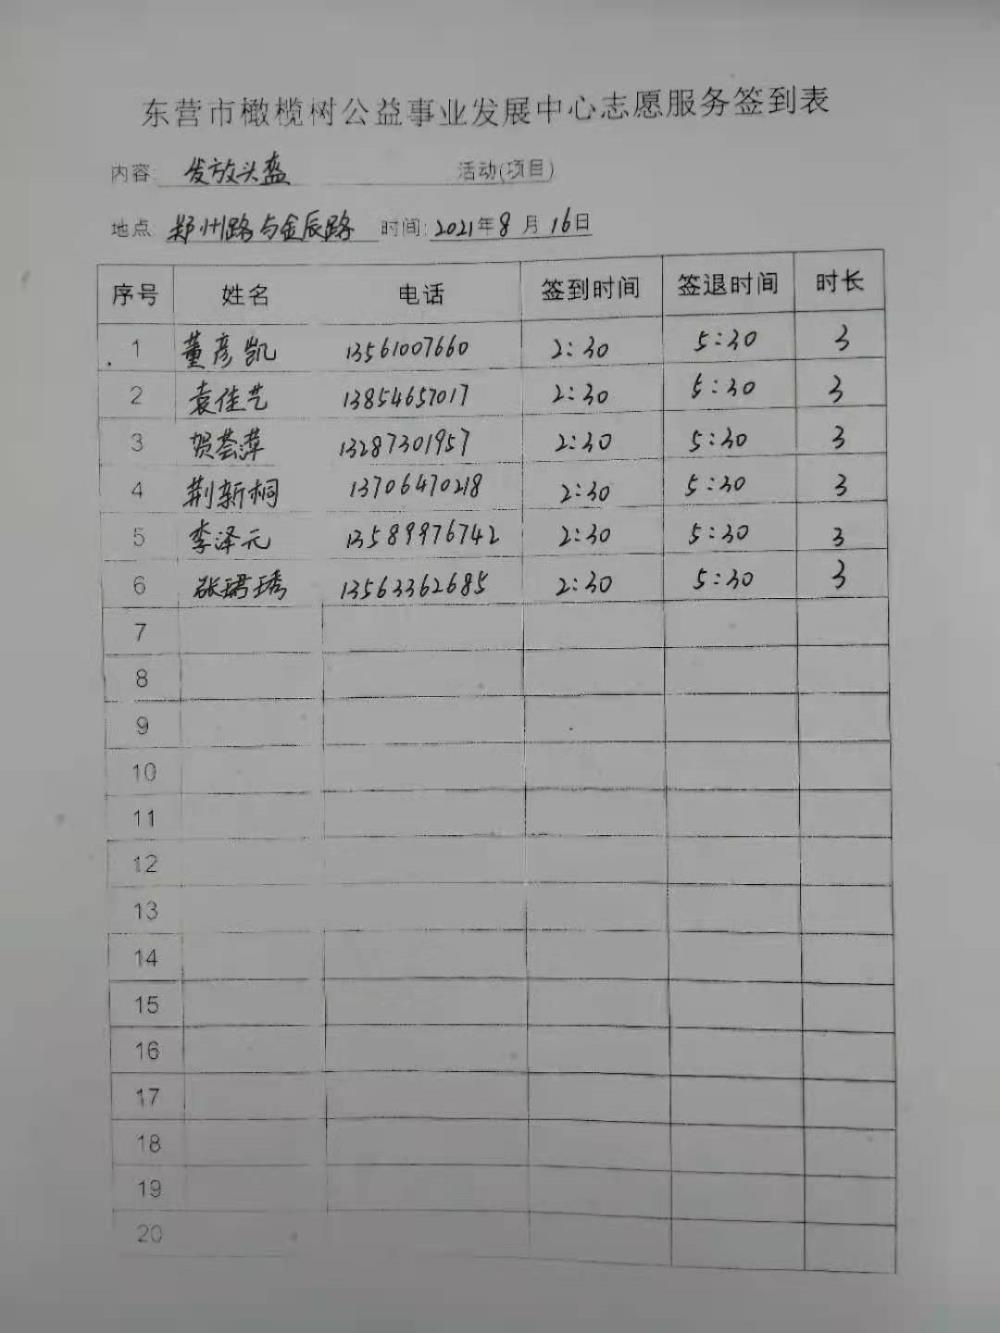 东营市橄榄树公益事业发展中心志愿服务签到表
内容: 发放头盔 活动(项目)
地点: 郑州路与金辰路 时间: 2021年8月16日
序号 姓名 电话 签到时间 签退时间 时长
1 董彦凯 13561007660 2:30 5:30 3
2 袁佳艺 13854657017 2:30 5:30 3
3 贺荟萍 13287301957 2:30 5:30 3
4 荆新桐 13706470218 2:30 5:30 3
5 李泽元 13589976742 2:30 5:30 3
6 张珺琇 13563362685 2:30 5:30 3
7
8
9
10
11
12
13
14
15
16
17
18
19
20